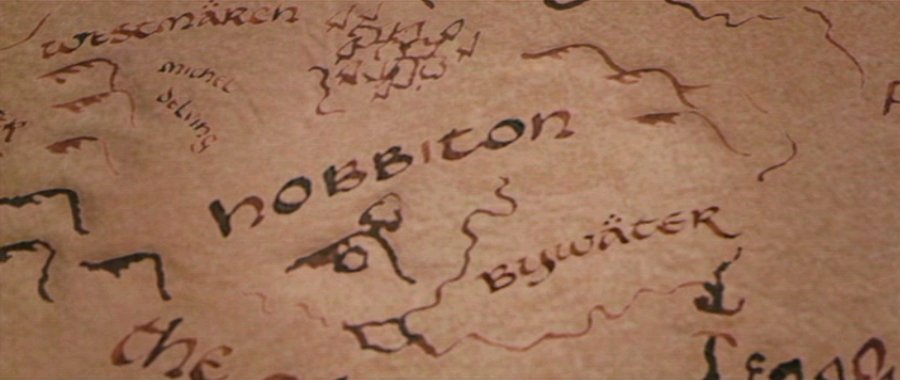 Westmären
Michel
Delving
HOBBITON
Bywäter
The